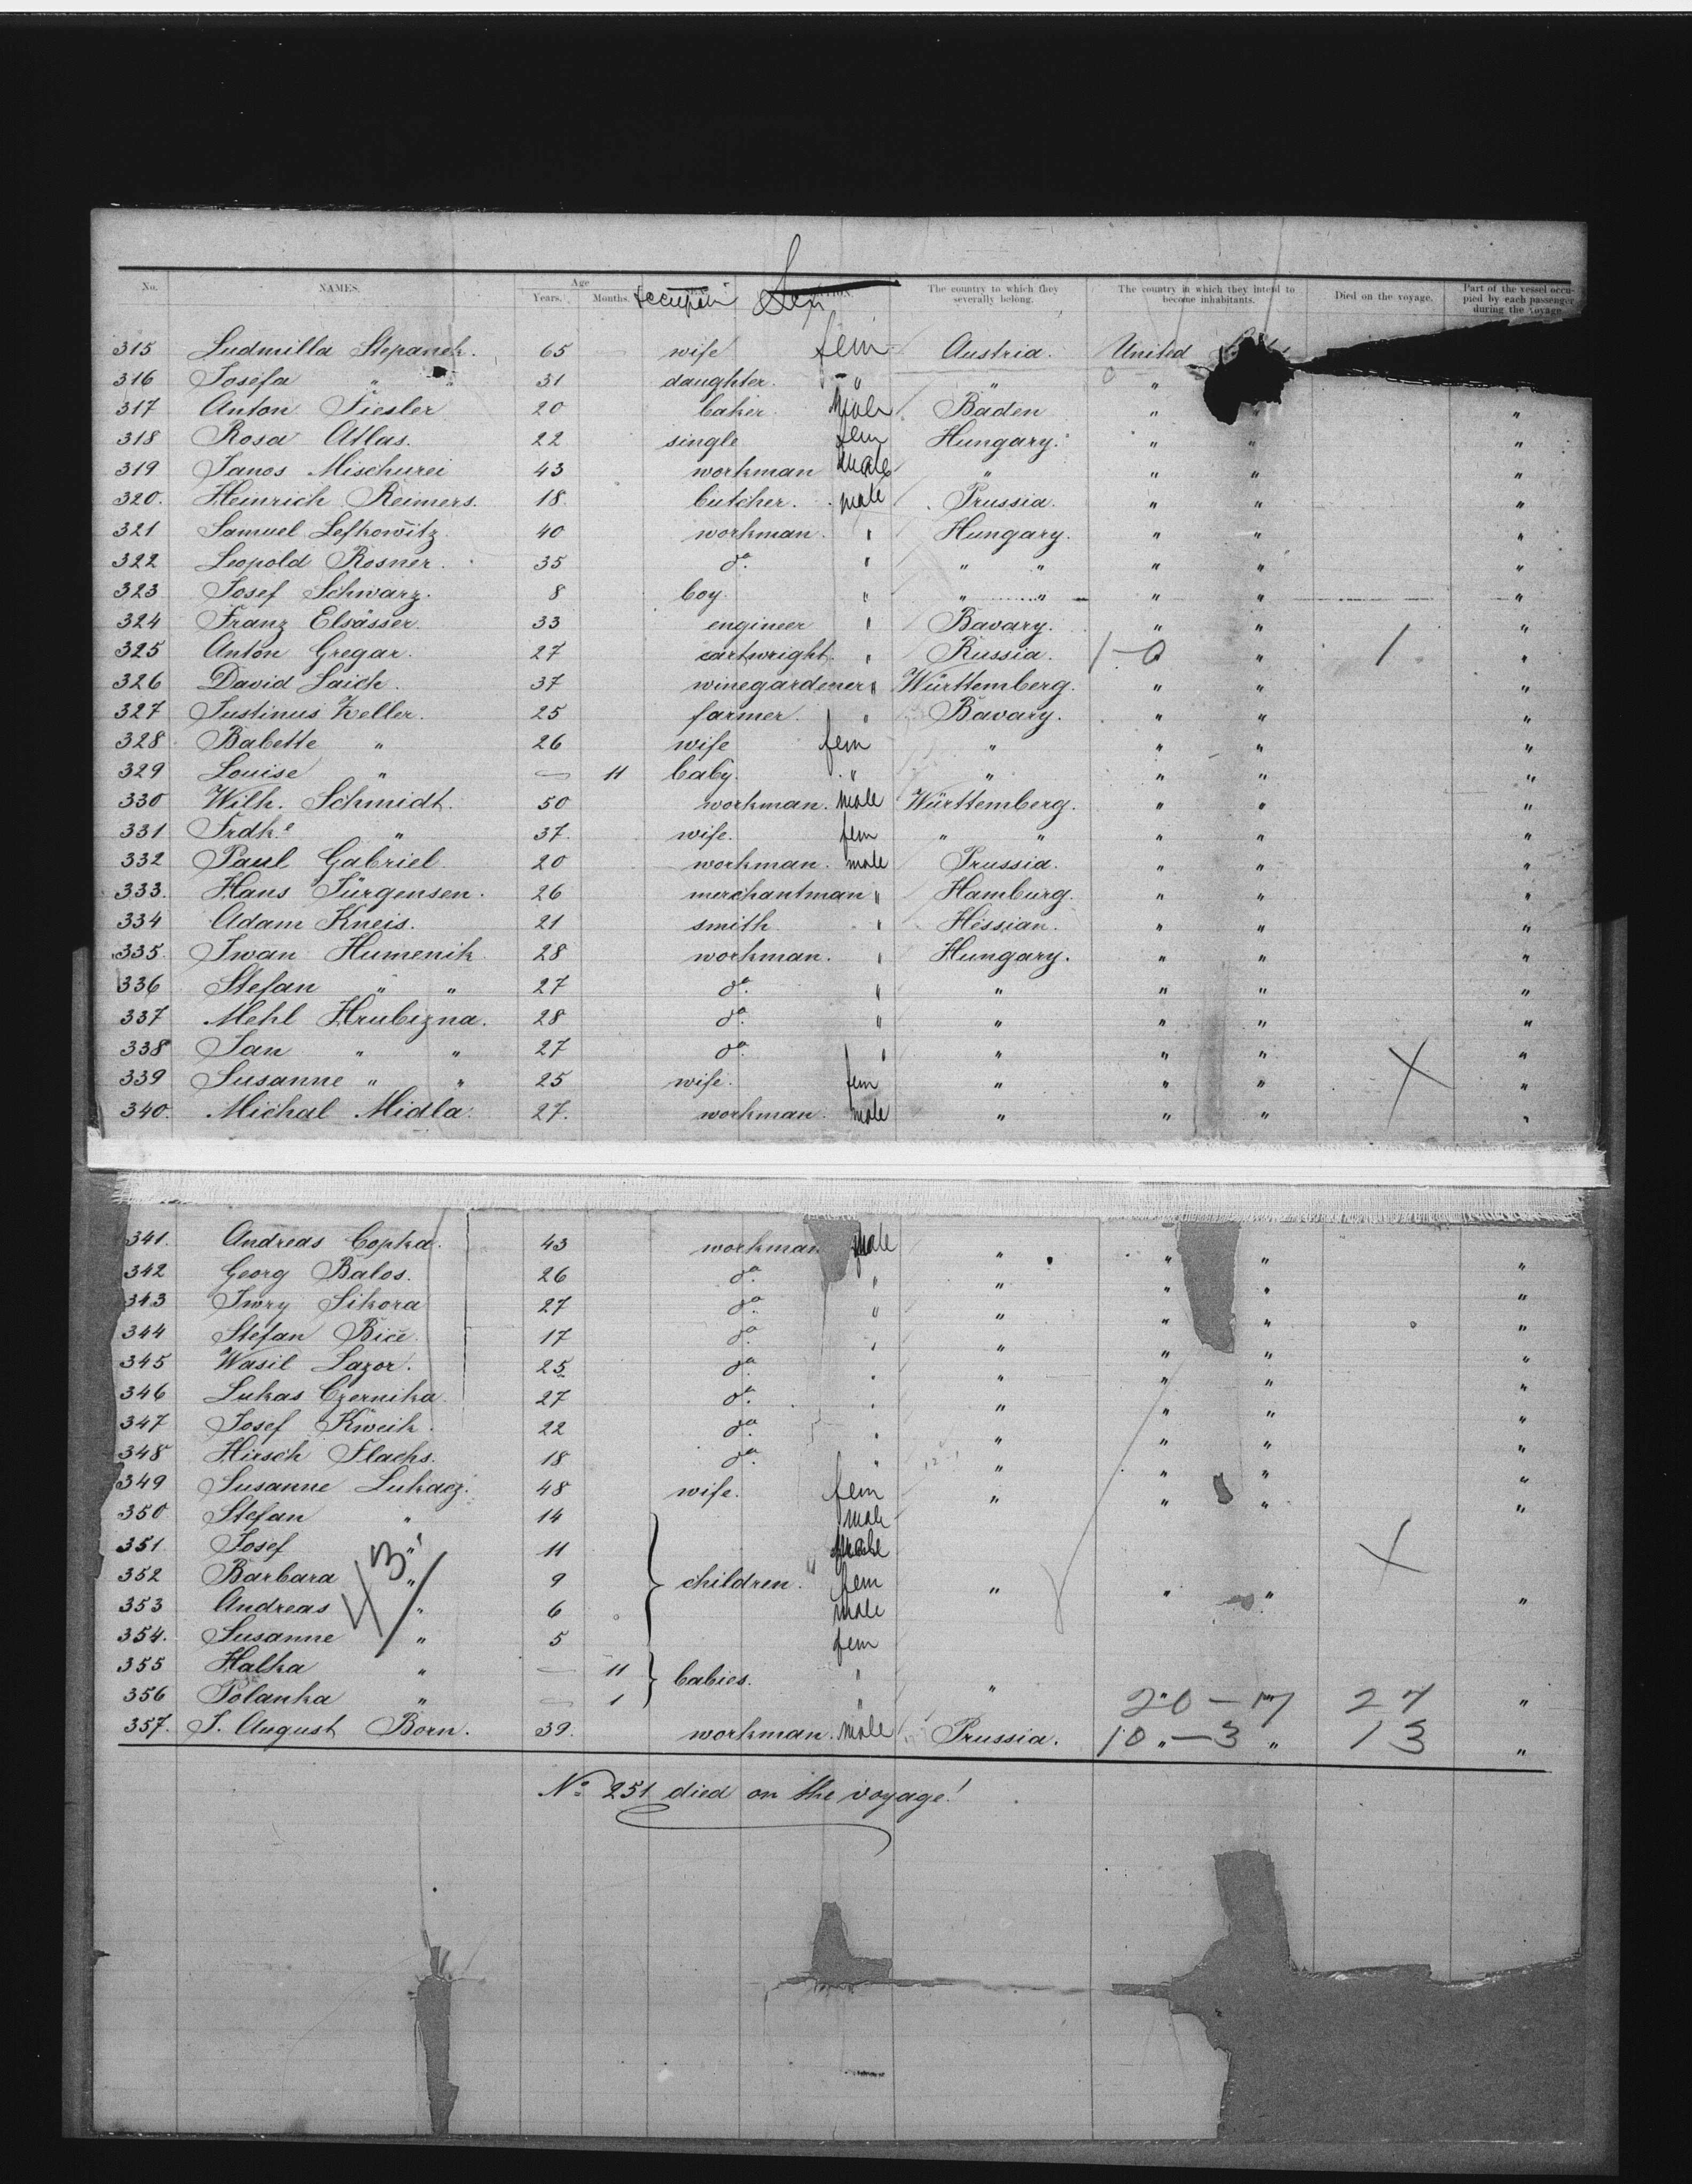 No. NAMES. Age Years. Months. Occupati Sex The country to which they severally belong. The country in which they intend to become inhabitants. Died on the voyage. Part of the vessel occupied by each passenger during the voyage
315 Ludmilla Stepanek. 65 wife fem Austria. United
316 Josefa " " 31 daughter. " " "
317 Anton Fiesler 20 baker. Male Baden " " "
318 Rosa Atlas. 22 single fem Hungary. " " "
319 Janos Mischurei 43 workman male " " " "
320. Heinrich Reimers. 18 butcher. male Prussia. " " "
321 Samuel Lefkowitz 40 workman. " Hungary. " " "
322 Leopold Rosner. 35 do. " " " " " "
323 Josef Schwarz. 8 boy. " " " " " "
324 Franz Elsässer. 33 engineer " Bavary. " " "
325 Anton Gregar. 27 cartwright. " Russia. 1-0 " 1 "
326 David Laich. 37 winegardener " Württemberg. " " "
327 Justinus Zeller. 25 farmer. " Bavary. " " "
328 Babette " 26 wife fem " " " "
329 Louise " — 11 baby. " " " " "
330 Wilh. Schmidt. 50 workman. male Württemberg. " " "
331 Frdke " 37. wife. fem " " " " "
332 Paul Gabriel 20 workman. male Prussia. " " "
333. Hans Jürgensen. 26 merchantman " Hamburg. " " "
334 Adam Kneis. 21 smith " Hessian. " " "
335. Iwan Humenik 28 workman. " Hungary. " " "
336 Stefan " " 27 do. " " " " "
337 Mehl Hrubizna. 28 do. " " " " "
338 Jan " " 27 do. " " " " "
339 Susanne " " 25 wife. fem " " " X "
340. Michal Midla. 27. workman. male " " " "
341. Andreas Copka. 43 workman male " " " "
342 Georg Balos. 26 do. " " " " "
343 Iwry Sikora 27 do. " " " " "
344 Stefan Bice. 17 do. " " " " "
345 Wasil Lazor. 25 do. " " " " "
346 Lukas Czernika 27 do. " " " " "
347 Josef Kweik. 22 do. " " " " "
348 Hirsch Flachs. 18 do. " " " " "
349 Susanne Lukacz. 48 wife. fem " " " "
350 Stefan " 14 male
351. Josef " 11 male X
352 Barbara " 9 children. fem " " " "
353 Andreas " 6 male
354. Susanne " 5 fem
43/
355 Halka " — 11 babies. "
356 Polanka " — 1 " " 20 - 7 27 "
357. J. August Born. 39. workman. male Prussia. 10 " - 3 " 13 "
No. 251 died on the voyage!